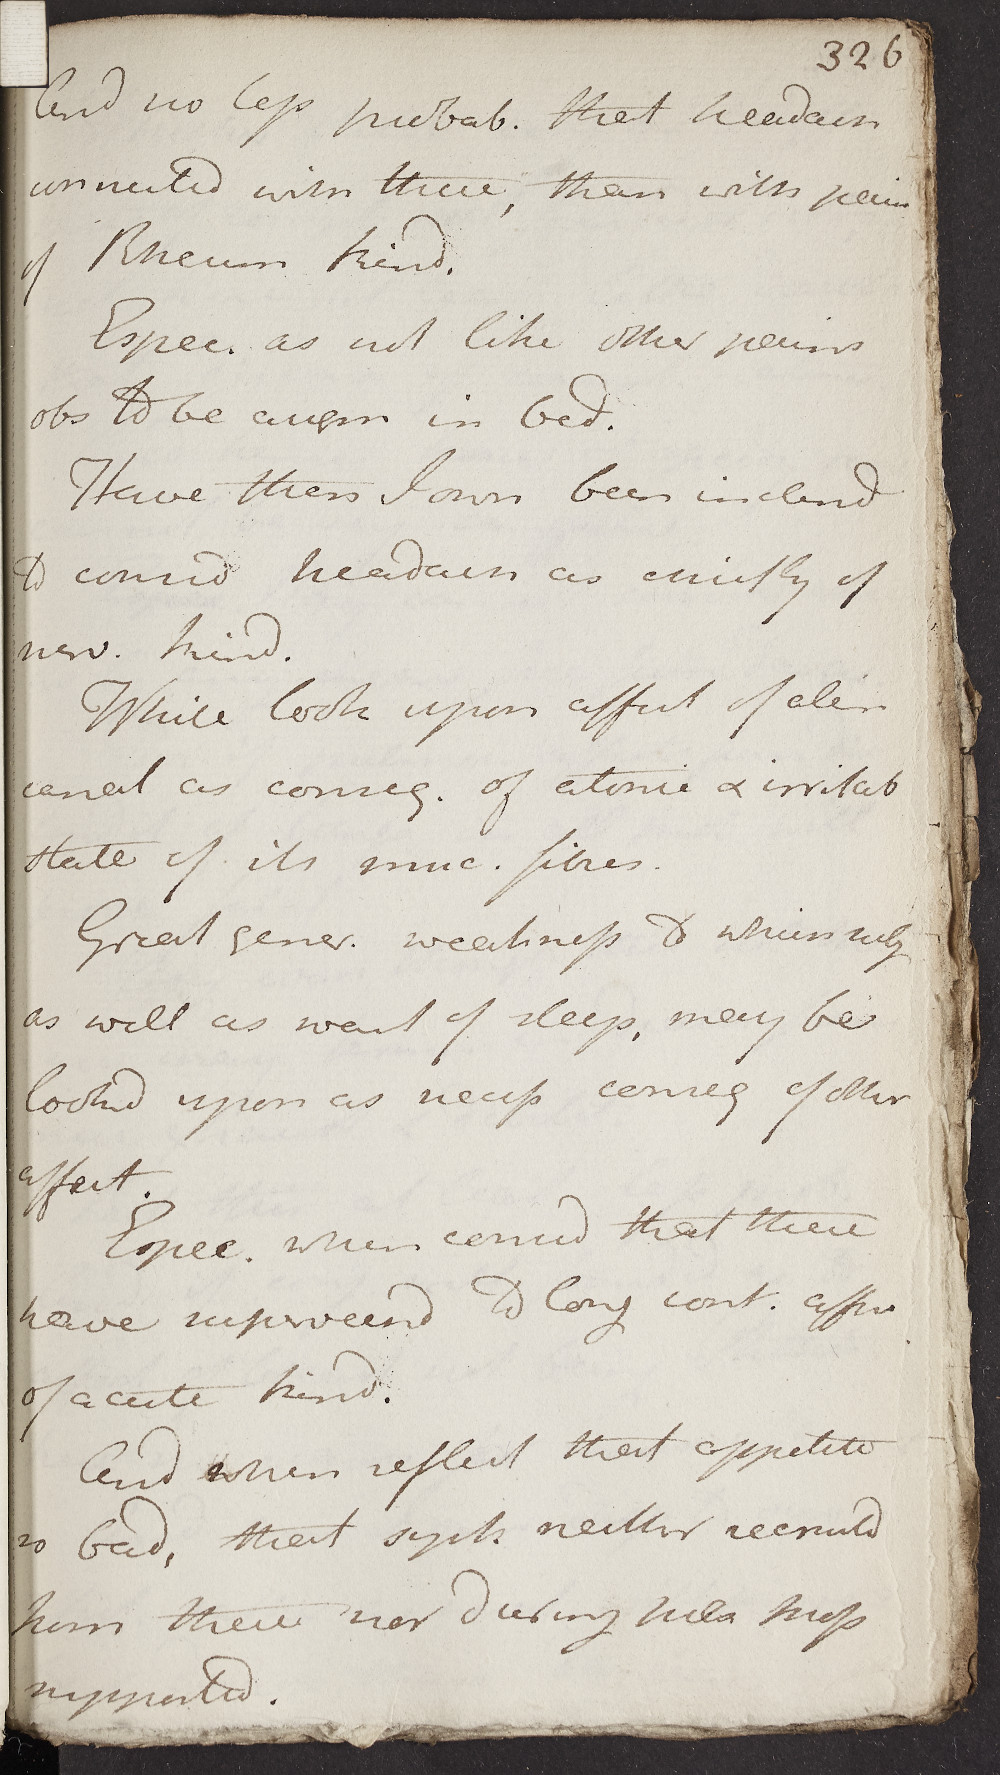 326
And no less probab. that headach
connected with these, than with pain
of Rheum kind.
Espec. as not like other pains
obs to be augm in bed.
Have then I own been inclind
to considd headach as chiefly of
nerv. kind.
While look upon affect of alim
canal as conseq. of atonic & irritab
state of its musc. fibres.
Great gener. weakness to which subj
as well as want of sleep, may be
lookd upon as necess conseq of other
affect.
Espec. when considd that these
have supervend to long cont. affec
of acute kind.
And when reflect that appetite
so bad, that syst neither recruitd
from these nor during
supported.